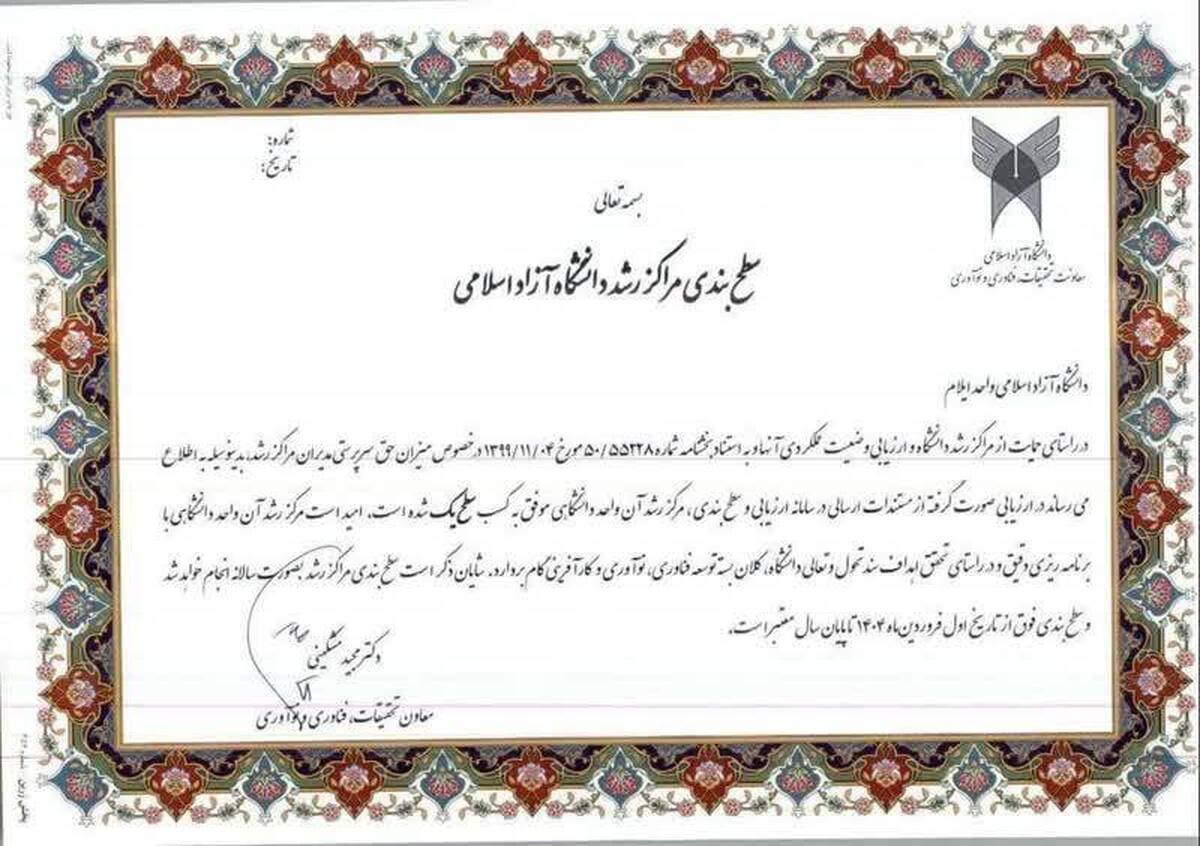 شماره:
تاریخ:
دانشگاه آزاد اسلامی
معاونت تحقیقات، فناوری و نوآوری
بسمه تعالی
سطح بندی مراکز رشد دانشگاه آزاد اسلامی
دانشگاه آزاد اسلامی واحد ایلام
در راستای حمایت از مراکز رشد دانشگاه و ارزیابی وضعیت عملکردی آنها و به استناد بخشنامه شماره ۵۰/۵۵۲۲۸ مورخ ۱۳۹۹/۱۱/۰۴ در خصوص میزان حق سرپرستی مدیران مراکز رشد، بدینوسیله به اطلاع
می رساند در ارزیابی صورت گرفته از مستندات ارسالی در سامانه ارزیابی و سطح بندی، مرکز رشد آن واحد دانشگاهی موفق به کسب سطح یک شده است. امید است مرکز رشد آن واحد دانشگاهی با
برنامه ریزی دقیق و در راستای تحقق اهداف سند تحول و تعالی دانشگاه، کلان بسته توسعه فناوری، نوآوری و کارآفرینی گام بردارد. شایان ذکر است سطح بندی مراکز رشد بصورت سالانه انجام خواهد شد
و سطح بندی فوق از تاریخ اول فروردین ماه ۱۴۰۴ تا پایان سال معتبر است.
دکتر مجید مشکینی
معاون تحقیقات، فناوری و نوآوری